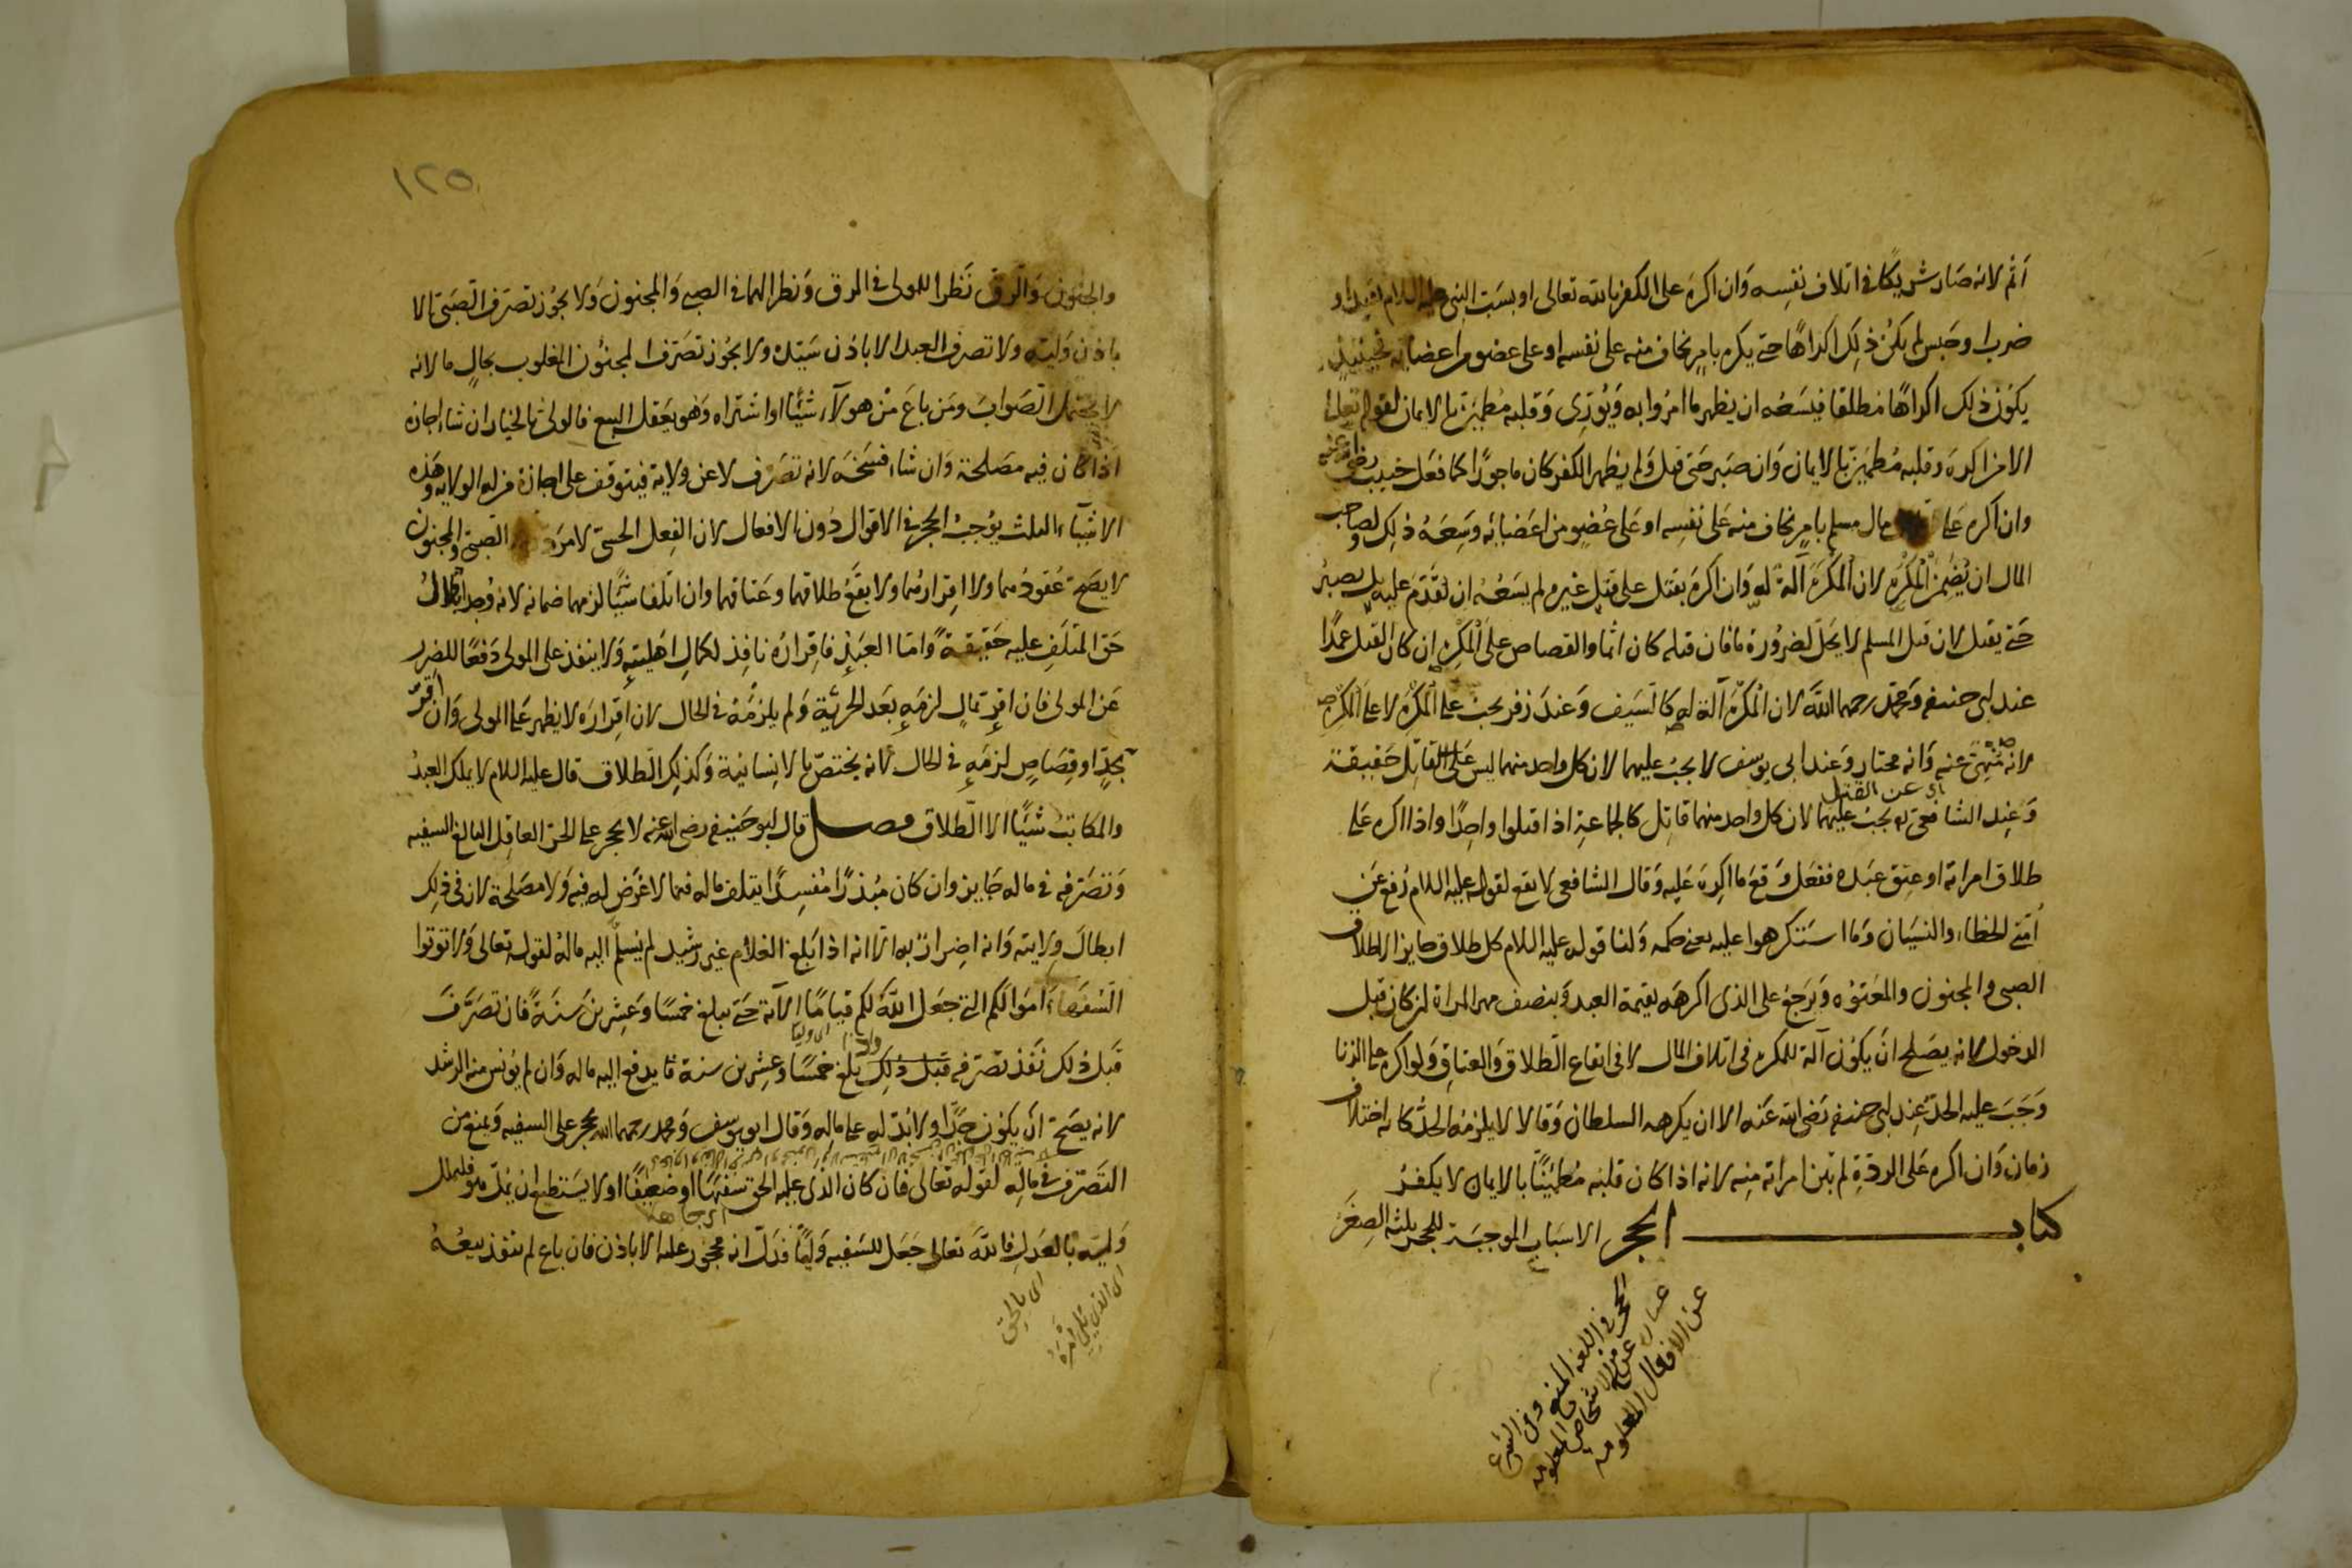 اثم لانه صار شريكا في اتلاف نفسه وان اكره على الكفر بالله تعالى او بسبّ النبي عليه السلام بقيد او
ضرب او حبس لم يكن ذلك اكراهًا حتى يكره بامر يخاف منه على نفسه او على عضو من اعضائه فحينئذ
يكون ذلك اكراهًا مطلقا فيسعه ان يظهر ما امروا به ويُورّي وقلبه مطمئن بالايمان لقوله تعالى
الا من اكره وقلبه مطمئن بالايمان وان صبر حتى قتل ولم يظهر الكفر كان ماجورًا كما فعل خبيب رضي الله عنه
وان اكره على مال مسلم بامر يخاف منه على نفسه او على عضو من اعضائه وسعه ذلك ولصاحب
المال ان يُضمّن المكرِه لان المكرَه آلة له وان اكره بقتل على قتل غيره لم يسعه ان يقدم عليه بل يصبر
حتى يقتل لان قتل المسلم لا يحلّ لضرورة ما فان قتله كان اثما والقصاص على المكرِه ان كان القتل عمدًا
عند ابي حنيفة ومحمد رحمهما الله لان المكرَه آلة له كالسيف وعند زفر يجب على المكرَه لا على المكرِه
لانه منهيّ عنه وانه مختار وعند ابي يوسف لا يجب عليهما لان كل واحد منهما ليس على القاتل حقيقة
اى عن القتل
وعند الشافعي يجب عليهما لان كل واحد منهما قاتل كالجماعة اذا قتلوا واحدًا واذا اكره على
طلاق امراته او عتق عبده ففعل وقع ما اكره عليه وقال الشافعي لا يقع لقوله عليه السلام رُفع عن
اُمّتي الخطاء والنسيان وما استكرهوا عليه يعني حكمه ولنا قوله عليه السلام كل طلاق جايز الا طلاق
الصبي والمجنون والمعتوه ويرجع على الذي اكرهه بقيمة العبد وبنصف مهر المراة ان كان قبل
الدخول لانه يصلح ان يكون آلة للمكره في اتلاف المال لا في ايقاع الطلاق والعتاق ولو اكره على الزنا
وجب عليه الحدّ عند ابي حنيفة رضى الله عنه الا ان يكرهه السلطان وقالا لا يلزمه الحدّ كانه اختلاف
زمان وان اكره على الردّة لم تبن امراته منه لانه اذا كان قلبه مطمئنًّا بالايمان لا يكفر
كتاب الحجر الاسباب الموجبة للحجر ثلثة الصغر
الحجر في اللغة المنع وفي الشرع
عبارة عن منع الاشخاص المعلومة
عن الافعال المعلومة
١٢٥
والجنون والرق نظرا للمولى في الرق ونظرا لهما في الصبي والمجنون ولا يجوز تصرف الصبي الا
باذن وليّه ولا تصرف العبد الا باذن سيّده ولا يجوز تصرف المجنون المغلوب بحال ما لانه
لا يحتمل الصواب ومن باع من هولاء شيئا او اشتراه وهو يعقل البيع فالولي بالخيار ان شاء اجازه
اذا كان فيه مصلحة وان شاء فسخه لانه تصرف لا عن ولاية فيتوقف على اجازة من له الولاية وهذه
الاشياء الثلث يوجب الحجر في الاقوال دون الافعال لان الفعل الحسيّ لا مردّ الصبي والمجنون
لا يصح عقودهما ولا اقرارهما ولا يقع طلاقهما وعتاقهما وان اتلفا شيئًا لزمهما ضمانه لانه وجد اتلاف
حق المتلف عليه حقيقةً واما العبد فاقراره نافذ لكمال اهليته ولا ينفذ على المولى دفعًا للضرر
عن المولى فان اقرّ بمال لزمه بعد الحرية ولم يلزمه في الحال لان اقراره لا يظهر على المولى وان اقرّ
بحدّ او قصاص لزمه في الحال لانه يختصّ بالانسانية وكذلك الطلاق قال عليه السلام لا يملك العبد
والمكاتب شيئًا الا الطلاق فصل قال ابو حنيفة رضى الله عنه لا يحجر على الحرّ العاقل البالغ السفيه
وتصرفه في ماله جايز وان كان مبذرًا مفسدًا يتلف ماله فيما لا غرض له فيه ولا مصلحة لان في ذلك
ابطال ولايته وانه اضرار به الا انه اذا بلغ الغلام غير رشيد لم يسلّم اليه ماله لقوله تعالى ولا توتوا
السفهاء اموالكم التي جعل الله لكم قياما الآية حتى يبلغ خمسًا وعشرين سنةً فان تصرّف
قبل ذلك نفذ تصرفه قبل ذلك بلغ خمسًا وعشرين سنة يدفع اليه ماله وان لم يونس منه الرشد
لانه يصح ان يكون جدًّا ولا بدّ له على ماله وقال ابو يوسف ومحمد رحمهما الله يحجر على السفيه ويمنع من
التصرف في ماله لقوله تعالى فان كان الذي عليه الحق سفيهًا او ضعيفًا او لا يستطيع ان يملّ هو فليملل
وليه بالعدل فالله تعالى جعل للسفيه وليًّا فدلّ انه محجور عليه الا باذن فان باع لم ينفذ بيعه
اى بالحق
اى الذي يلي امره